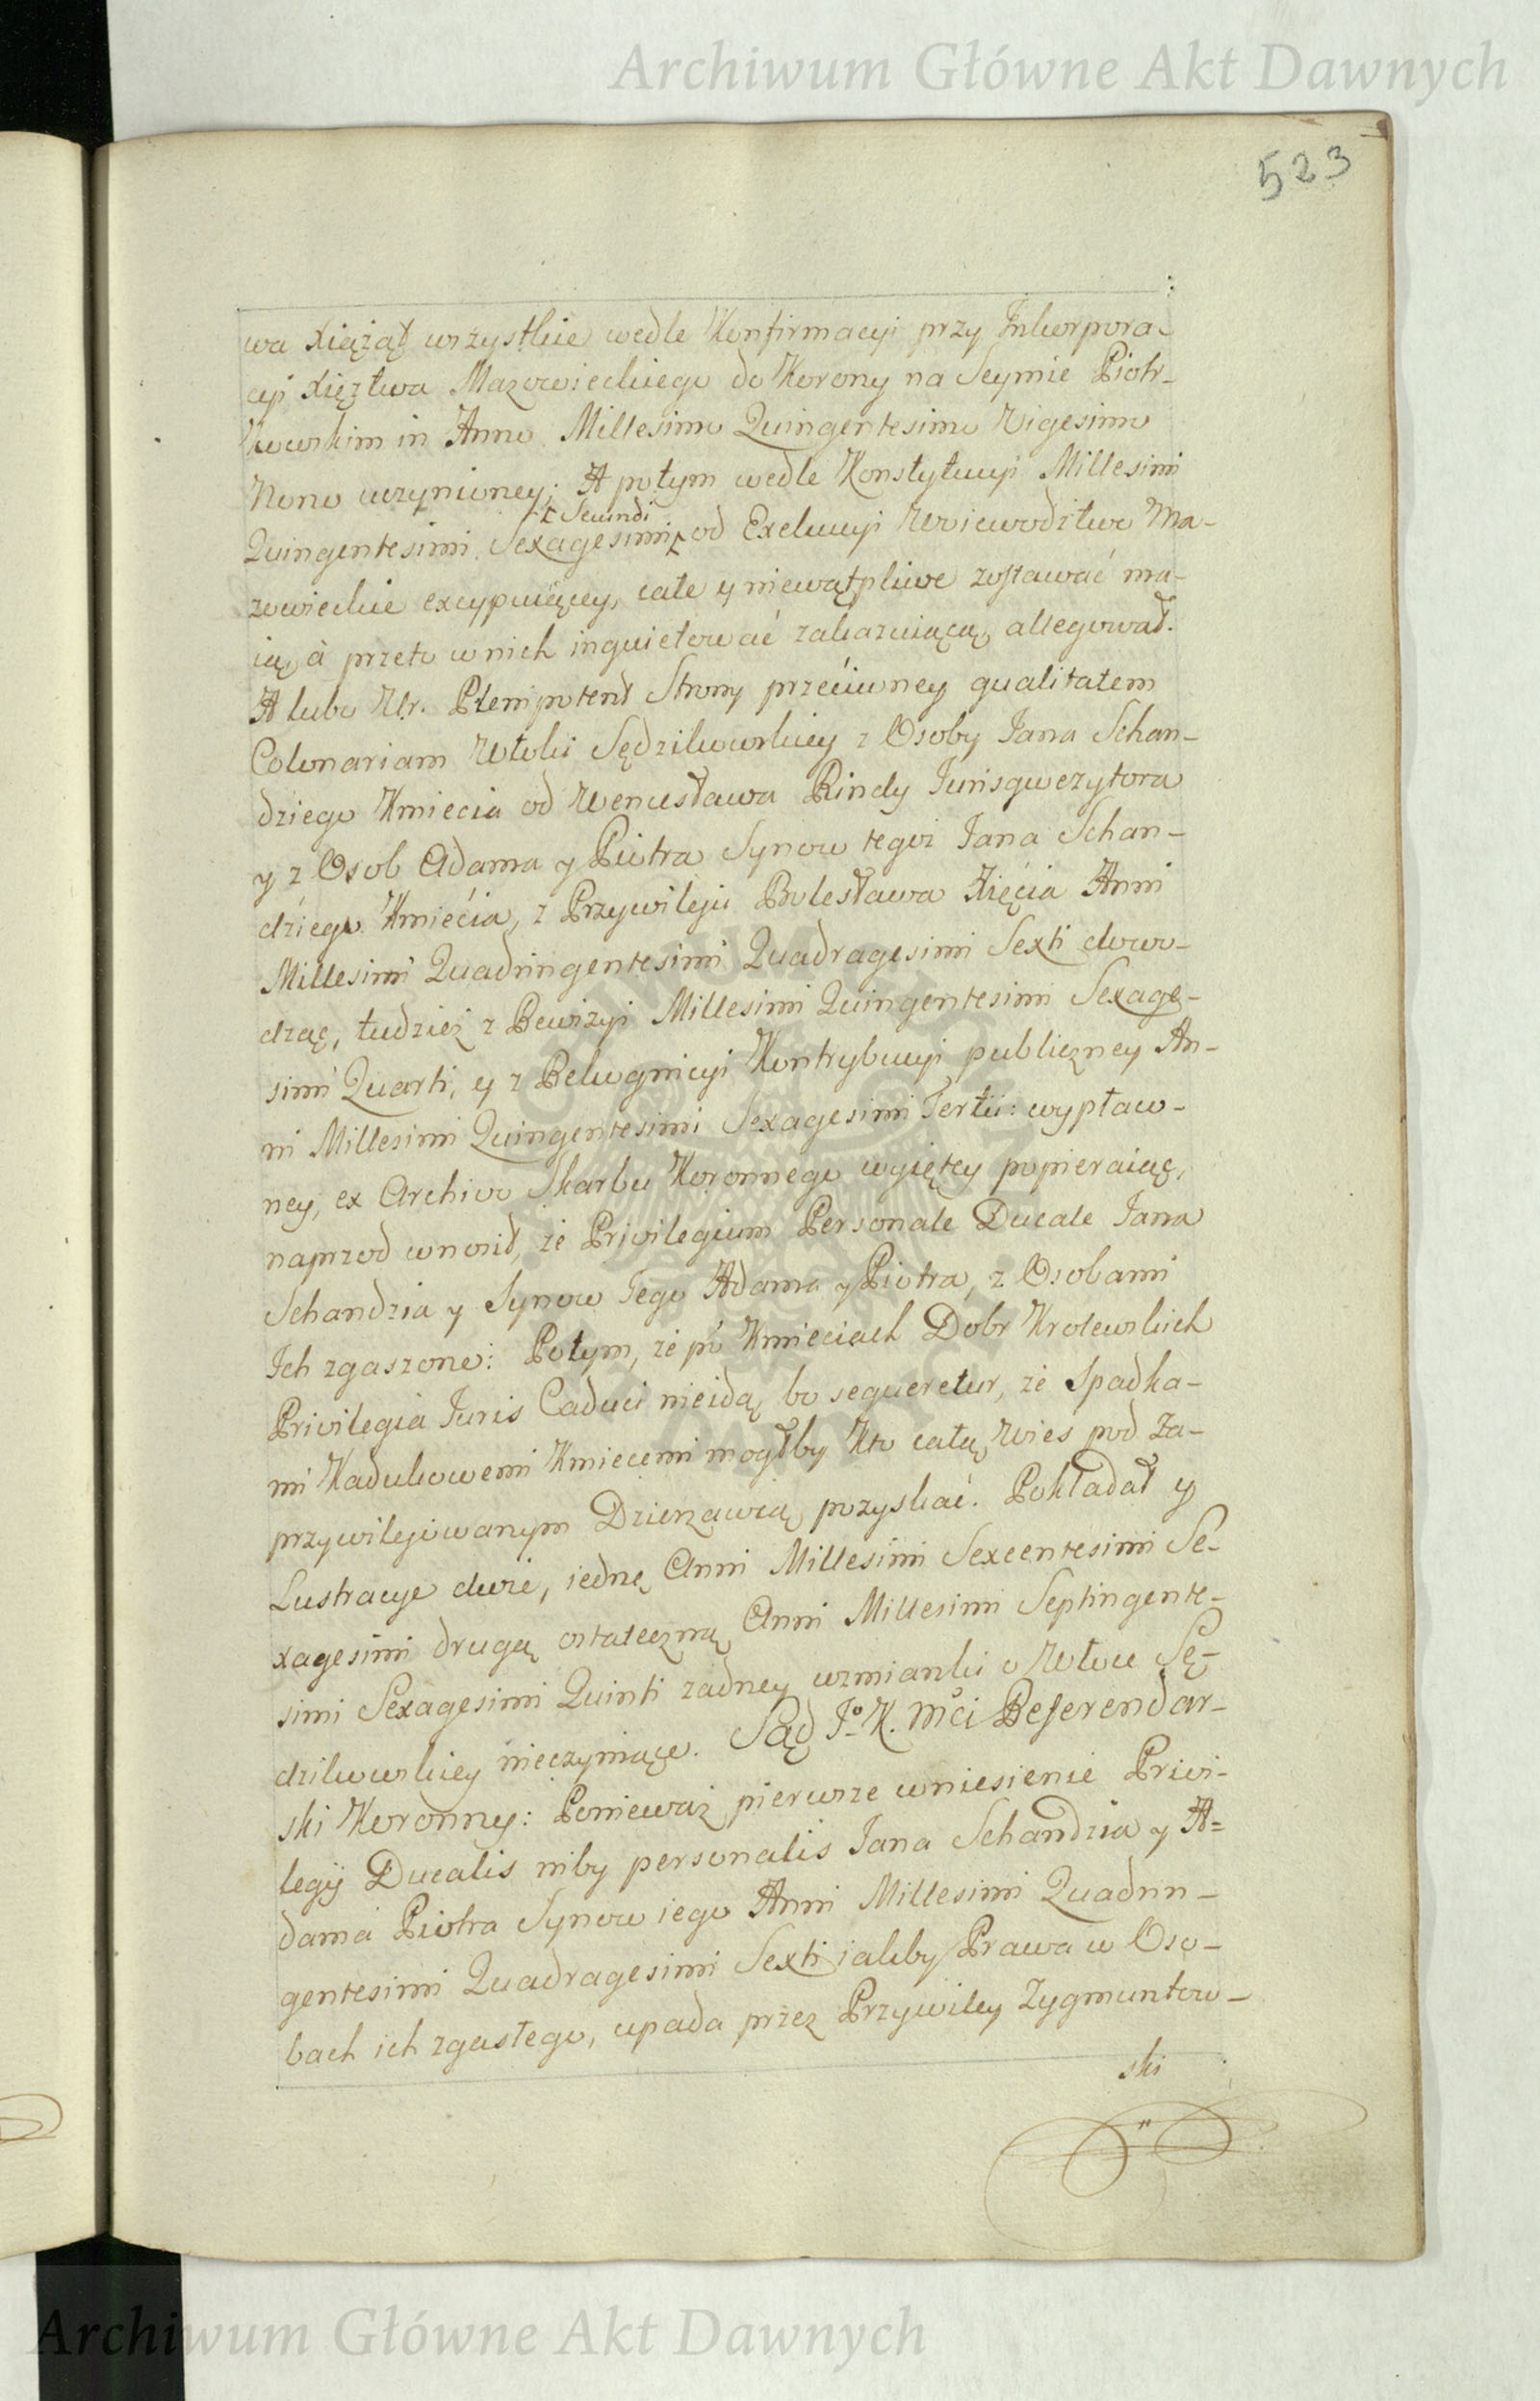 Archiwum Główne Akt Dawnych
523
wa Xiążąt wszystkie wedle Konfirmacyi przy Inkorpora-
cyi Xięztwa Mazowieckiego do Korony na Seymie Piotr-
kowskim in Anno Millesimo Quingentesimo Vigesimo
Nono uczynioney; A potym wedle Konstytucyi Millesimi
Quingentesimi Sexagesimi et Secundi od Exekucyi Woiewodztwo Ma-
zowieckie excypuiącey, całe y niewątpliwe zostawać ma-
ią, à przeto w nich inquietować zakazuiącą, allegował.
A lubo Ur. Plenipotent Strony przeciwney qualitatem
Colonariam Włoki Sędzikowskiey z Osoby Jana Schan-
dziego Kmiecia od Wencusława Rindy Jurisqwezytora
y z Osob Adama y Piotra Synow tegoż Jana Schan-
dziego Kmiécia, z Przywileju Bolesława Xięcia Anni
Millesimi Quadringentesimi Quadragesimi Sexti dowo-
dząc, tudzież z Rewizyi Millesimi Quingentesimi Sexage-
simi Quarti, y z Rekognicyi Kontrybucyi publiczney An-
ni Millesimi Quingentesimi Sexagesimi Tertii: wypław-
ney, ex Archivo Skarbu Koronnego wyiętey popieraiąc,
naprzod wnosił, że Privilegium Personale Ducale Jana
Schandzia y Synow Jego Adama y Piotra, z Osobami
Ich zgaszone: Potym, że po Kmieciach Dobr Krolewskich
Privilegia Juris Caduci nieidą, bo sequeretur, że Spadka-
mi Kadukowemi Kmiecemi mogłby Kto całą Wies pod Za-
przywilejowanym Dzierzawcą pozyskać. Pokładał y
Lustracye dwie, iednę Anni Millesimi Sexcentesimi Se-
xagesimi drugą ostateczną Anni Millesimi Septingente-
simi Sexagesimi Quinti zadney wzmianki o Włoce Sę-
dzikowskiey nieczyniące. Sąd Jº K. Mci Referendar-
ski Koronny: Ponieważ pierwsze wniesienie Privi-
legij Ducalis niby personalis Jana Schandzia y A=
dama Piotra Synow iego Anni Millesimi Quadrin-
gentesimi Quadragesimi Sexti iakby Prawa w Oso-
bach ich zgasłego, upada przez Przywiley Zygmuntow-
ski
Archiwum Główne Akt Dawnych